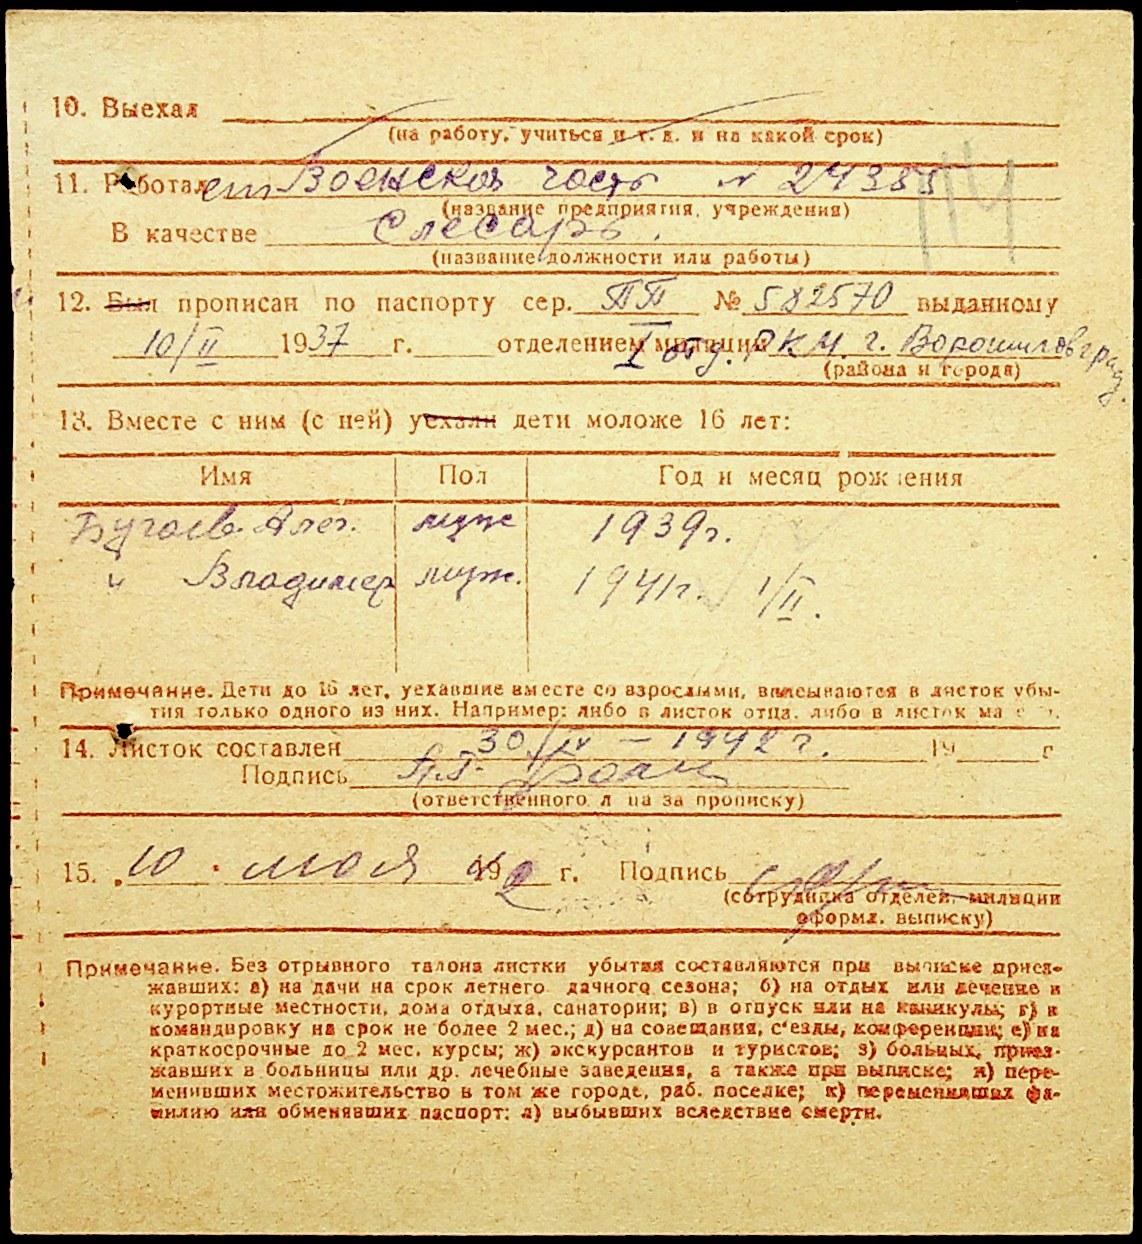 10. Выехал
(на работу, учиться и т. д. и на какой срок)
11. Работал ет Воинская часть № 24385
(название предприятия, учреждения)
114
В качестве Слесарь.
(название должности или работы)
12. Был прописан по паспорту сер. ТТП № 582570 выданному
10/II 1937 г. отделением милиции I отд. РКМ. г. Ворошиловград.
(района и города)
13. Вместе с ним (с ней) уехали дети моложе 16 лет:
Имя Пол Год и месяц рождения
Бугаев Алег. муж 1939г.
" Владимер муж. 1941г. 1/II.
Примечание. Дети до 16 лет, уехавшие вместе со взрослыми, вписываются в листок убы-
тия только одного из них. Например: либо в листок отца, либо в листок ма
14. Листок составлен 30/IV – 1942 г. 19 г
Подпись
(ответственного лица за прописку)
15. „10 " мая 192 г. Подпись
(сотрудника отделен. милиции
оформл. выписку)
Примечание. Без отрывного талона листки убытия составляются при выписке приез-
жавших: а) на дачи на срок летнего дачного сезона; б) на отдых или лечение в
курортные местности, дома отдыха, санатории; в) в отпуск или на каникулы; г) в
командировку на срок не более 2 мес.; д) на совещания, с'езды, конференции; е) на
краткосрочные до 2 мес. курсы; ж) экскурсантов и туристов; з) больных, приез-
жавших в больницы или др. лечебные заведения, а также при выписке; и) пере-
менивших местожительство в том же городе, раб. поселке; к) переменивших фа-
милию или обменявших паспорт; л) выбывших вследствие смерти.